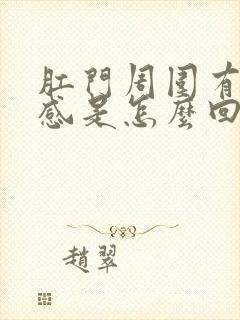 肛門周圍有
感是怎麼回
趙翠